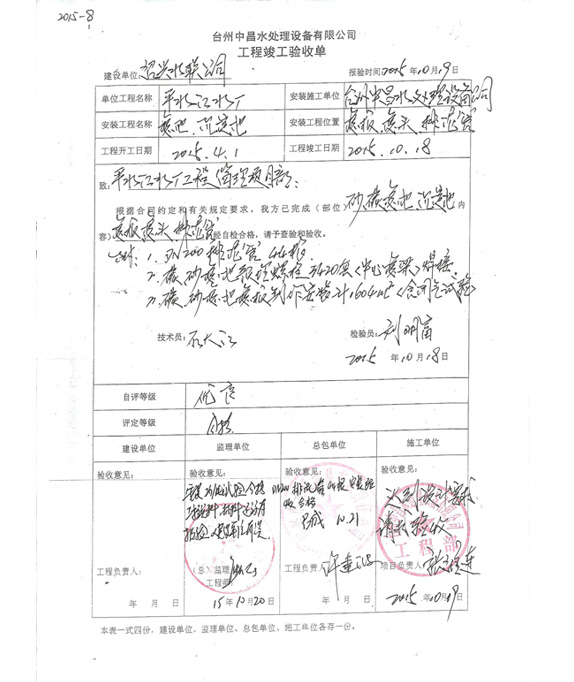 2015-8
台州中昌水处理设备有限公司
工程竣工验收单
建设单位: 绍兴水联公司 报验时间: 2015年10月19日
单位工程名称 平水江水厂 安装施工单位 台州中昌水处理设备公司
安装工程名称 滤池、沉淀池 安装工程位置 滤板、滤头、排泥管
工程开工日期 2015.4.1 工程竣工日期 2015.10.18
致: 平水江水厂工程管理项目部:
根据合同约定和有关规定要求,我方已完成(部位) 砂、碳滤池、沉淀池 内
容) 滤板滤头、排泥管 经自检合格,请予查验和验收。
1. DN200排泥管 44
2. 碳、砂滤池 预埋螺栓 3420套(中心 梁)焊接
3. 碳、砂滤池滤板制作安装计1604m²(含闭气试验
技术员: 石大 检验员: 刘明富
2015年10月18日
自评等级 优良
评定等级 合格
建设单位 监理单位 总包单位 施工单位
验收意见: 验收意见: 验收意见: 验收意见:
DN200排泥管 安装验
收合格
10.21
达到设计要求
请求验收
工程部
工程负责人: (总)监理工程师: 工程负责人: 许 项目负责人: 张
年 月 日 15年10月20日 年 月 日 2015年10月19日
本表一式四份,建设单位、监理单位、总包单位、施工单位各存一份。